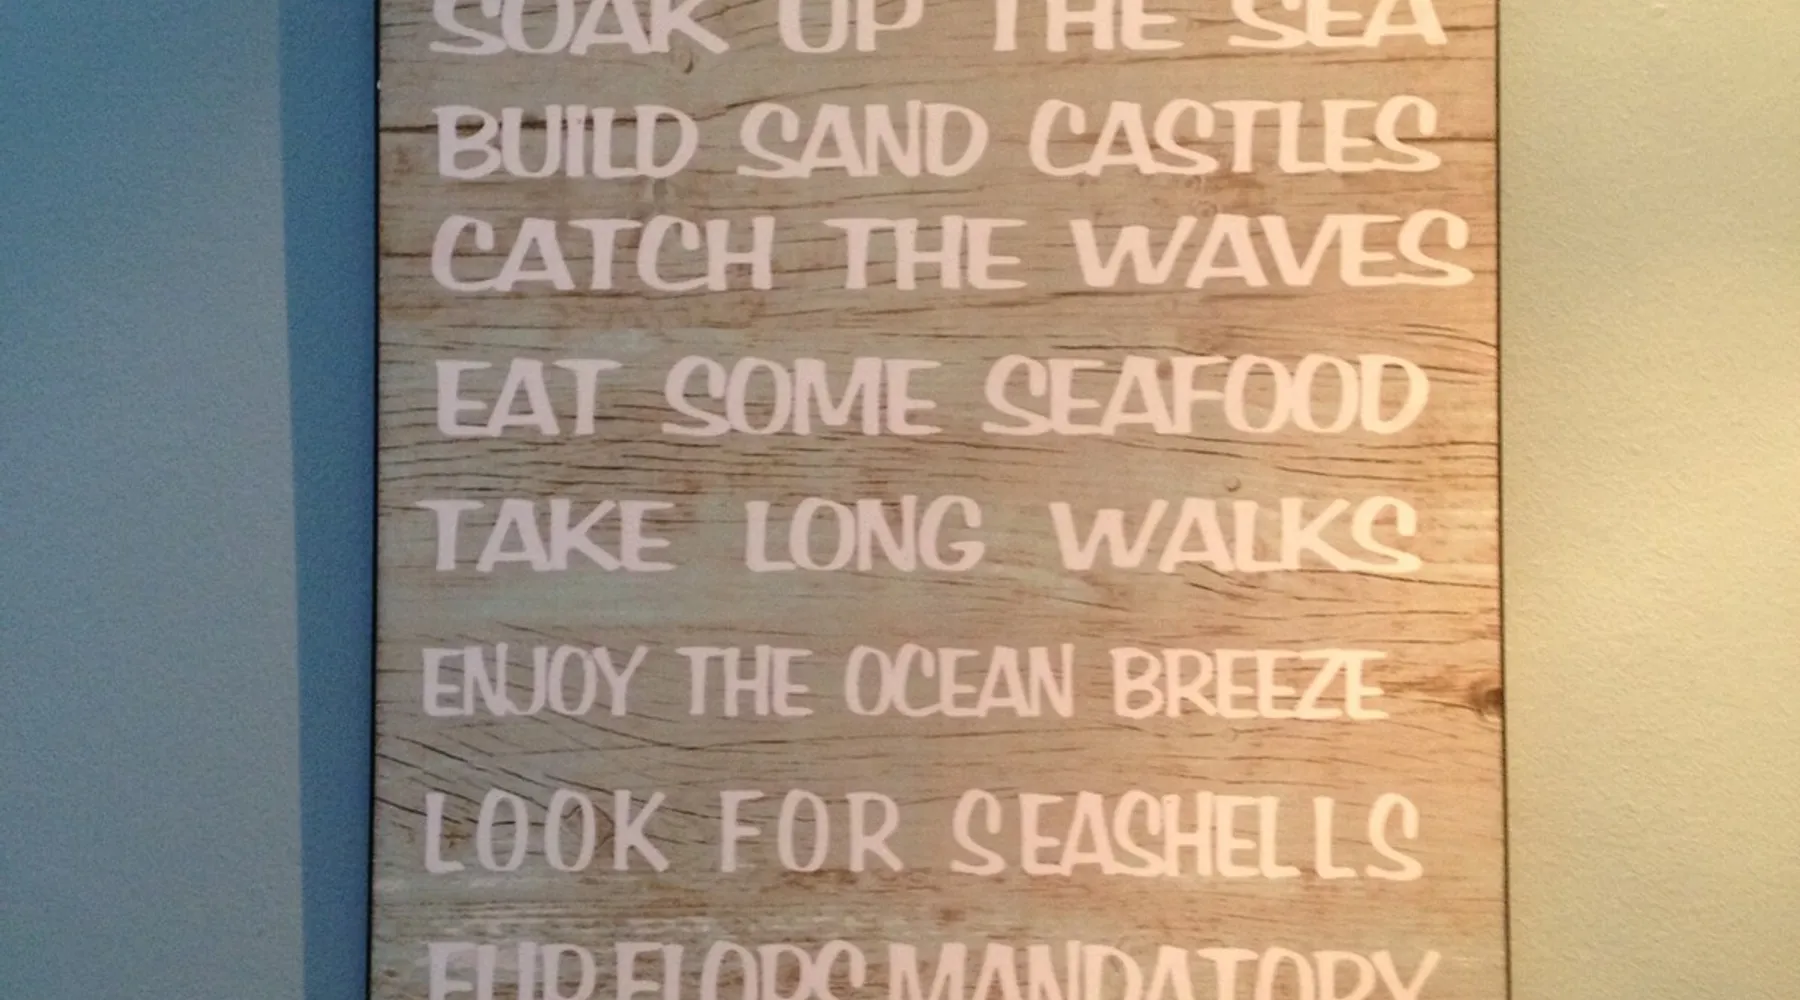 SOAK UP THE SEA
BUILD SAND CASTLES
CATCH THE WAVES
EAT SOME SEAFOOD
TAKE LONG WALKS
ENJOY THE OCEAN BREEZE
LOOK FOR SEASHELLS
FLIP FLOPS MANDATORY